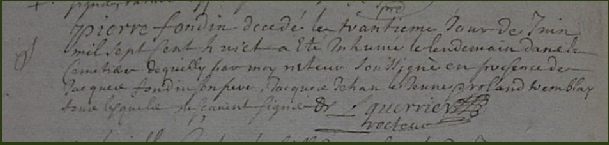 pierre fondin decedé le trantieme Jour de Juin
mil sept sent huict a été Inhumé le lendemain dans le
Cimetiere par moy recteur Soussigné en presence de
Jacque fondin son pere, Jacque jehan le Jeune roland
tous lesquels ne scavent signer guerrier
recteur